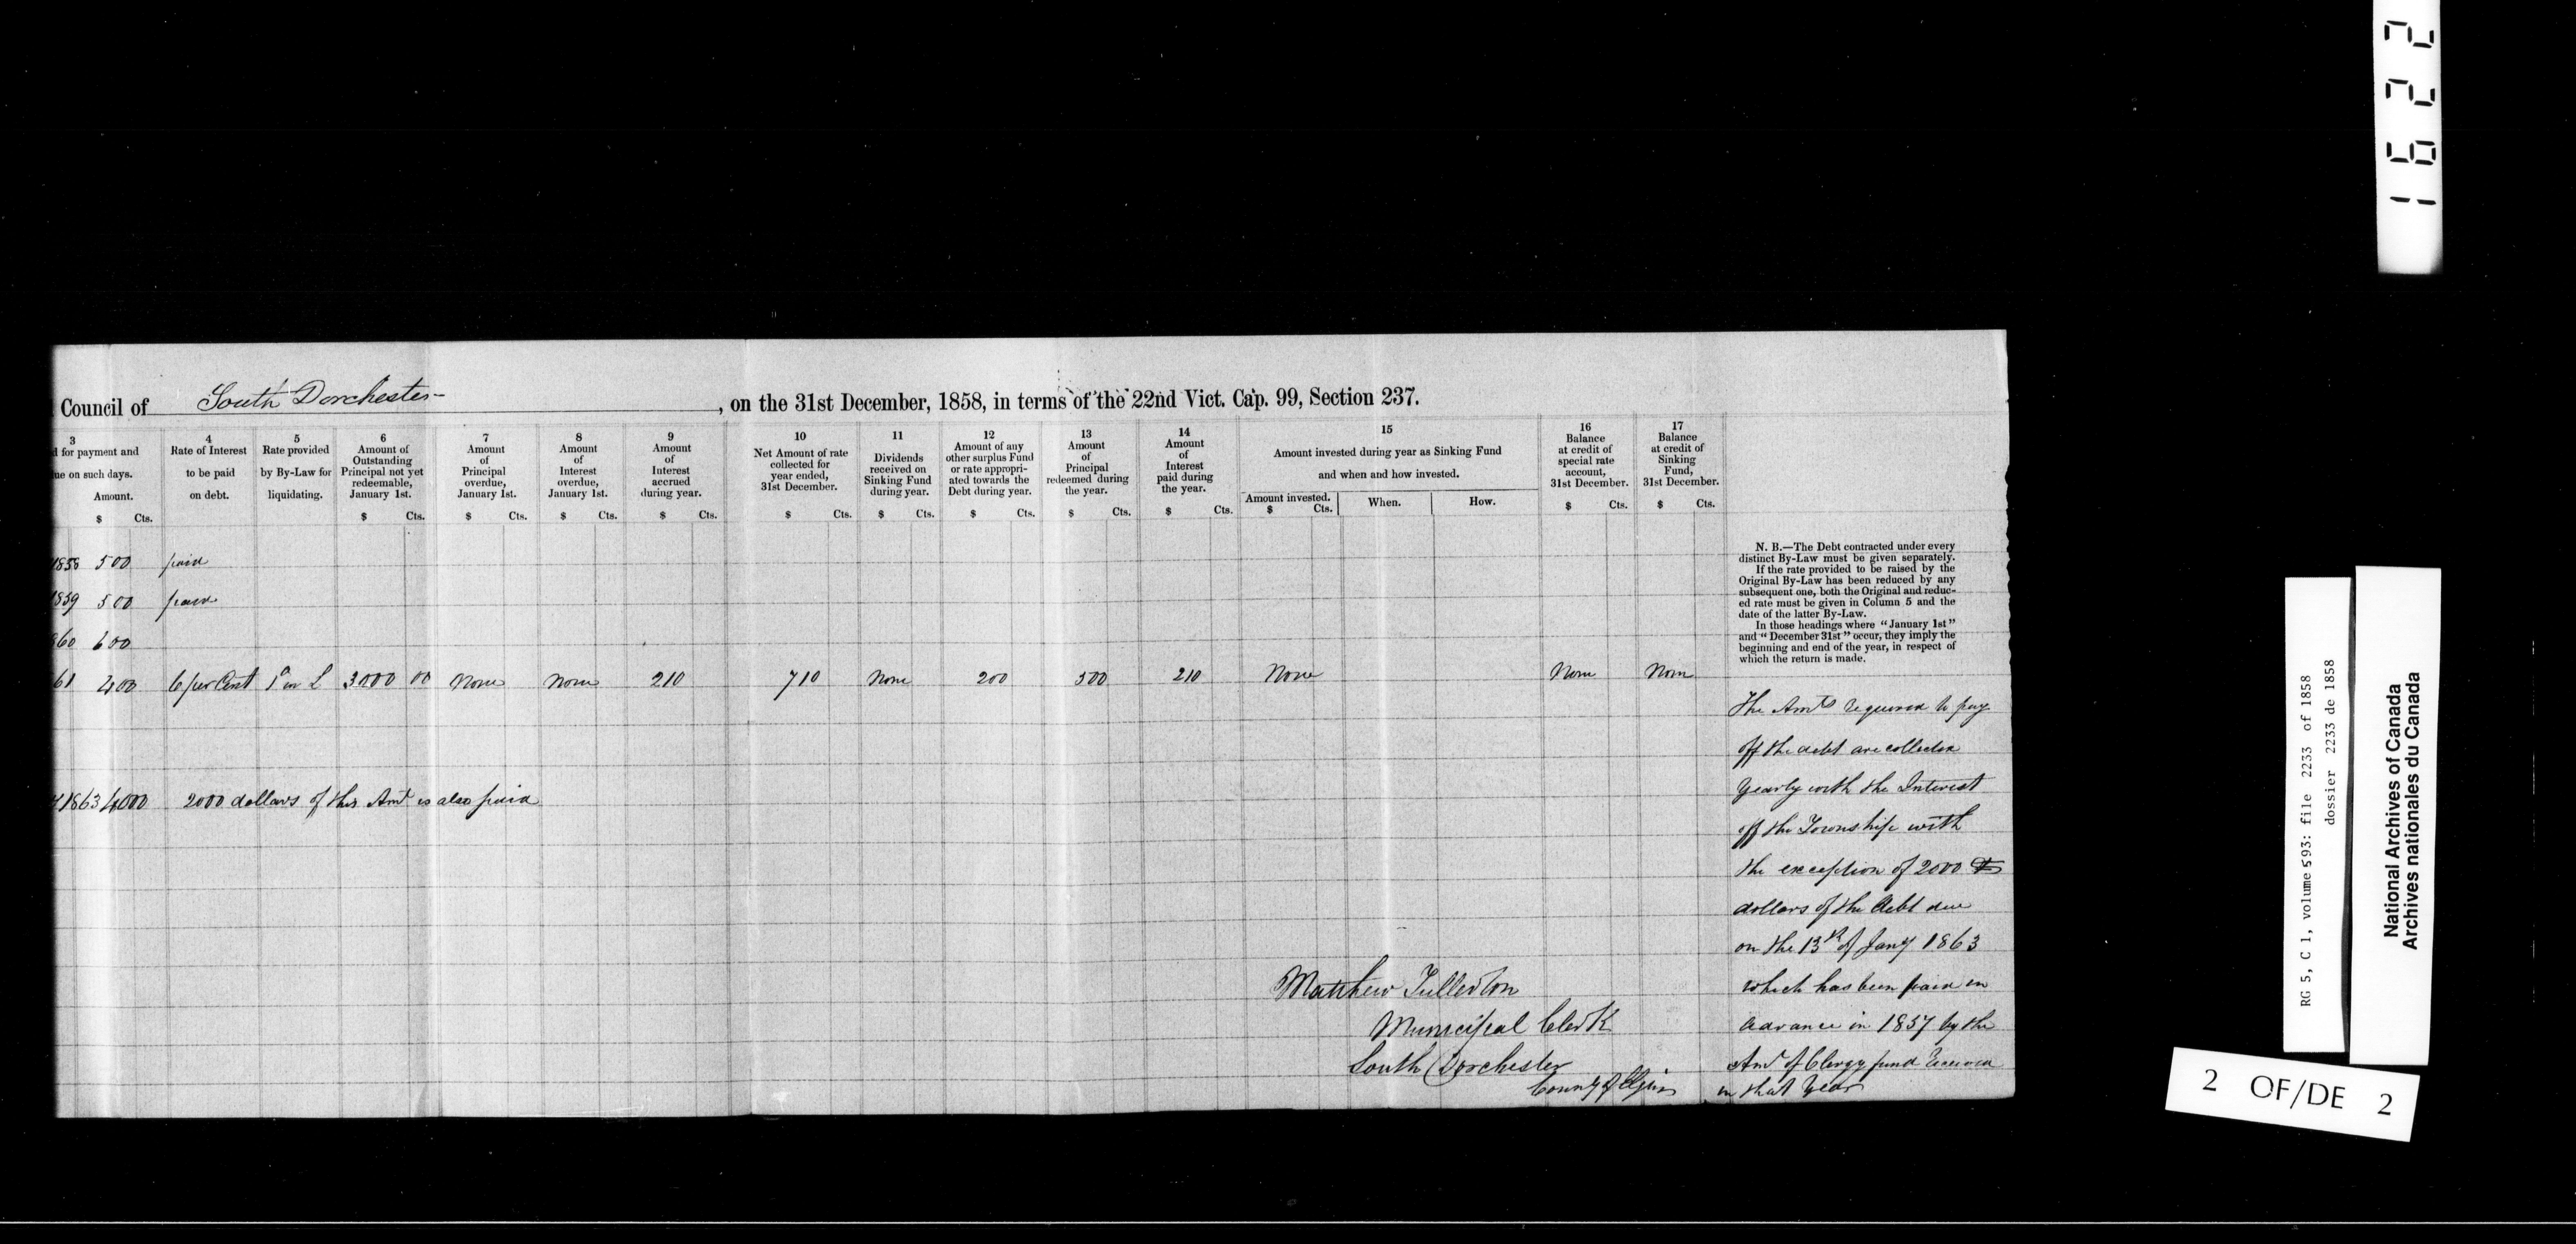 1622
Council of South Dorchester, on the 31st December, 1858, in terms of the 22nd Vict. Cap. 99, Section 237.
3
d for payment and
ue on such days.
Amount.
$ Cts.
4
Rate of Interest
to be paid
on debt.
5
Rate provided
by By-Law for
liquidating.
6
Amount of
Outstanding
Principal not yet
redeemable,
January 1st.
$ Cts.
7
Amount
of
Principal
overdue,
January 1st.
$ Cts.
8
Amount
of
Interest
overdue,
January 1st.
$ Cts.
9
Amount
of
Interest
accrued
during year.
$ Cts.
10
Net Amount of rate
collected for
year ended,
31st December.
$ Cts.
11
Dividends
received on
Sinking Fund
during year.
$ Cts.
12
Amount of any
other surplus Fund
or rate appropri-
ated towards the
Debt during year.
$ Cts.
13
Amount
of
Principal
redeemed during
the year.
$ Cts.
14
Amount
of
Interest
paid during
the year.
$ Cts.
15
Amount invested during year as Sinking Fund
and when and how invested.
Amount invested. When. How.
$ Cts.
16
Balance
at credit of
special rate
account,
31st December.
$ Cts.
17
Balance
at credit of
Sinking
Fund,
31st December.
$ Cts.
1858 500 paid
1859 500 paid
860 600
61 400 6 per Cent 3000 00 None None 210 710 None 200 500 210 None None None
1863 4000 2000 dollars of this Amt is also paid
N. B.—The Debt contracted under every
distinct By-Law must be given separately.
If the rate provided to be raised by the
Original By-Law has been reduced by any
subsequent one, both the Original and reduc-
ed rate must be given in Column 5 and the
date of the latter By-Law.
In those headings where "January 1st"
and "December 31st" occur, they imply the
beginning and end of the year, in respect of
which the return is made.
The Amts required to pay
off the debt are collected
yearly with the Interest
off the Township with
the exception of 2000
dollars of the debt due
on the 13th of Jany 1863
which has been paid in
advance in 1857 by the
Amt of Clergy fund Received
in that Year
Matthew Fullerton
Municipal Clerk
South Dorchester
County of Elgin
RG 5, C 1, volume 593: file 2233 of 1858
dossier 2233 de 1858
National Archives of Canada
Archives nationales du Canada
2 OF/DE 2